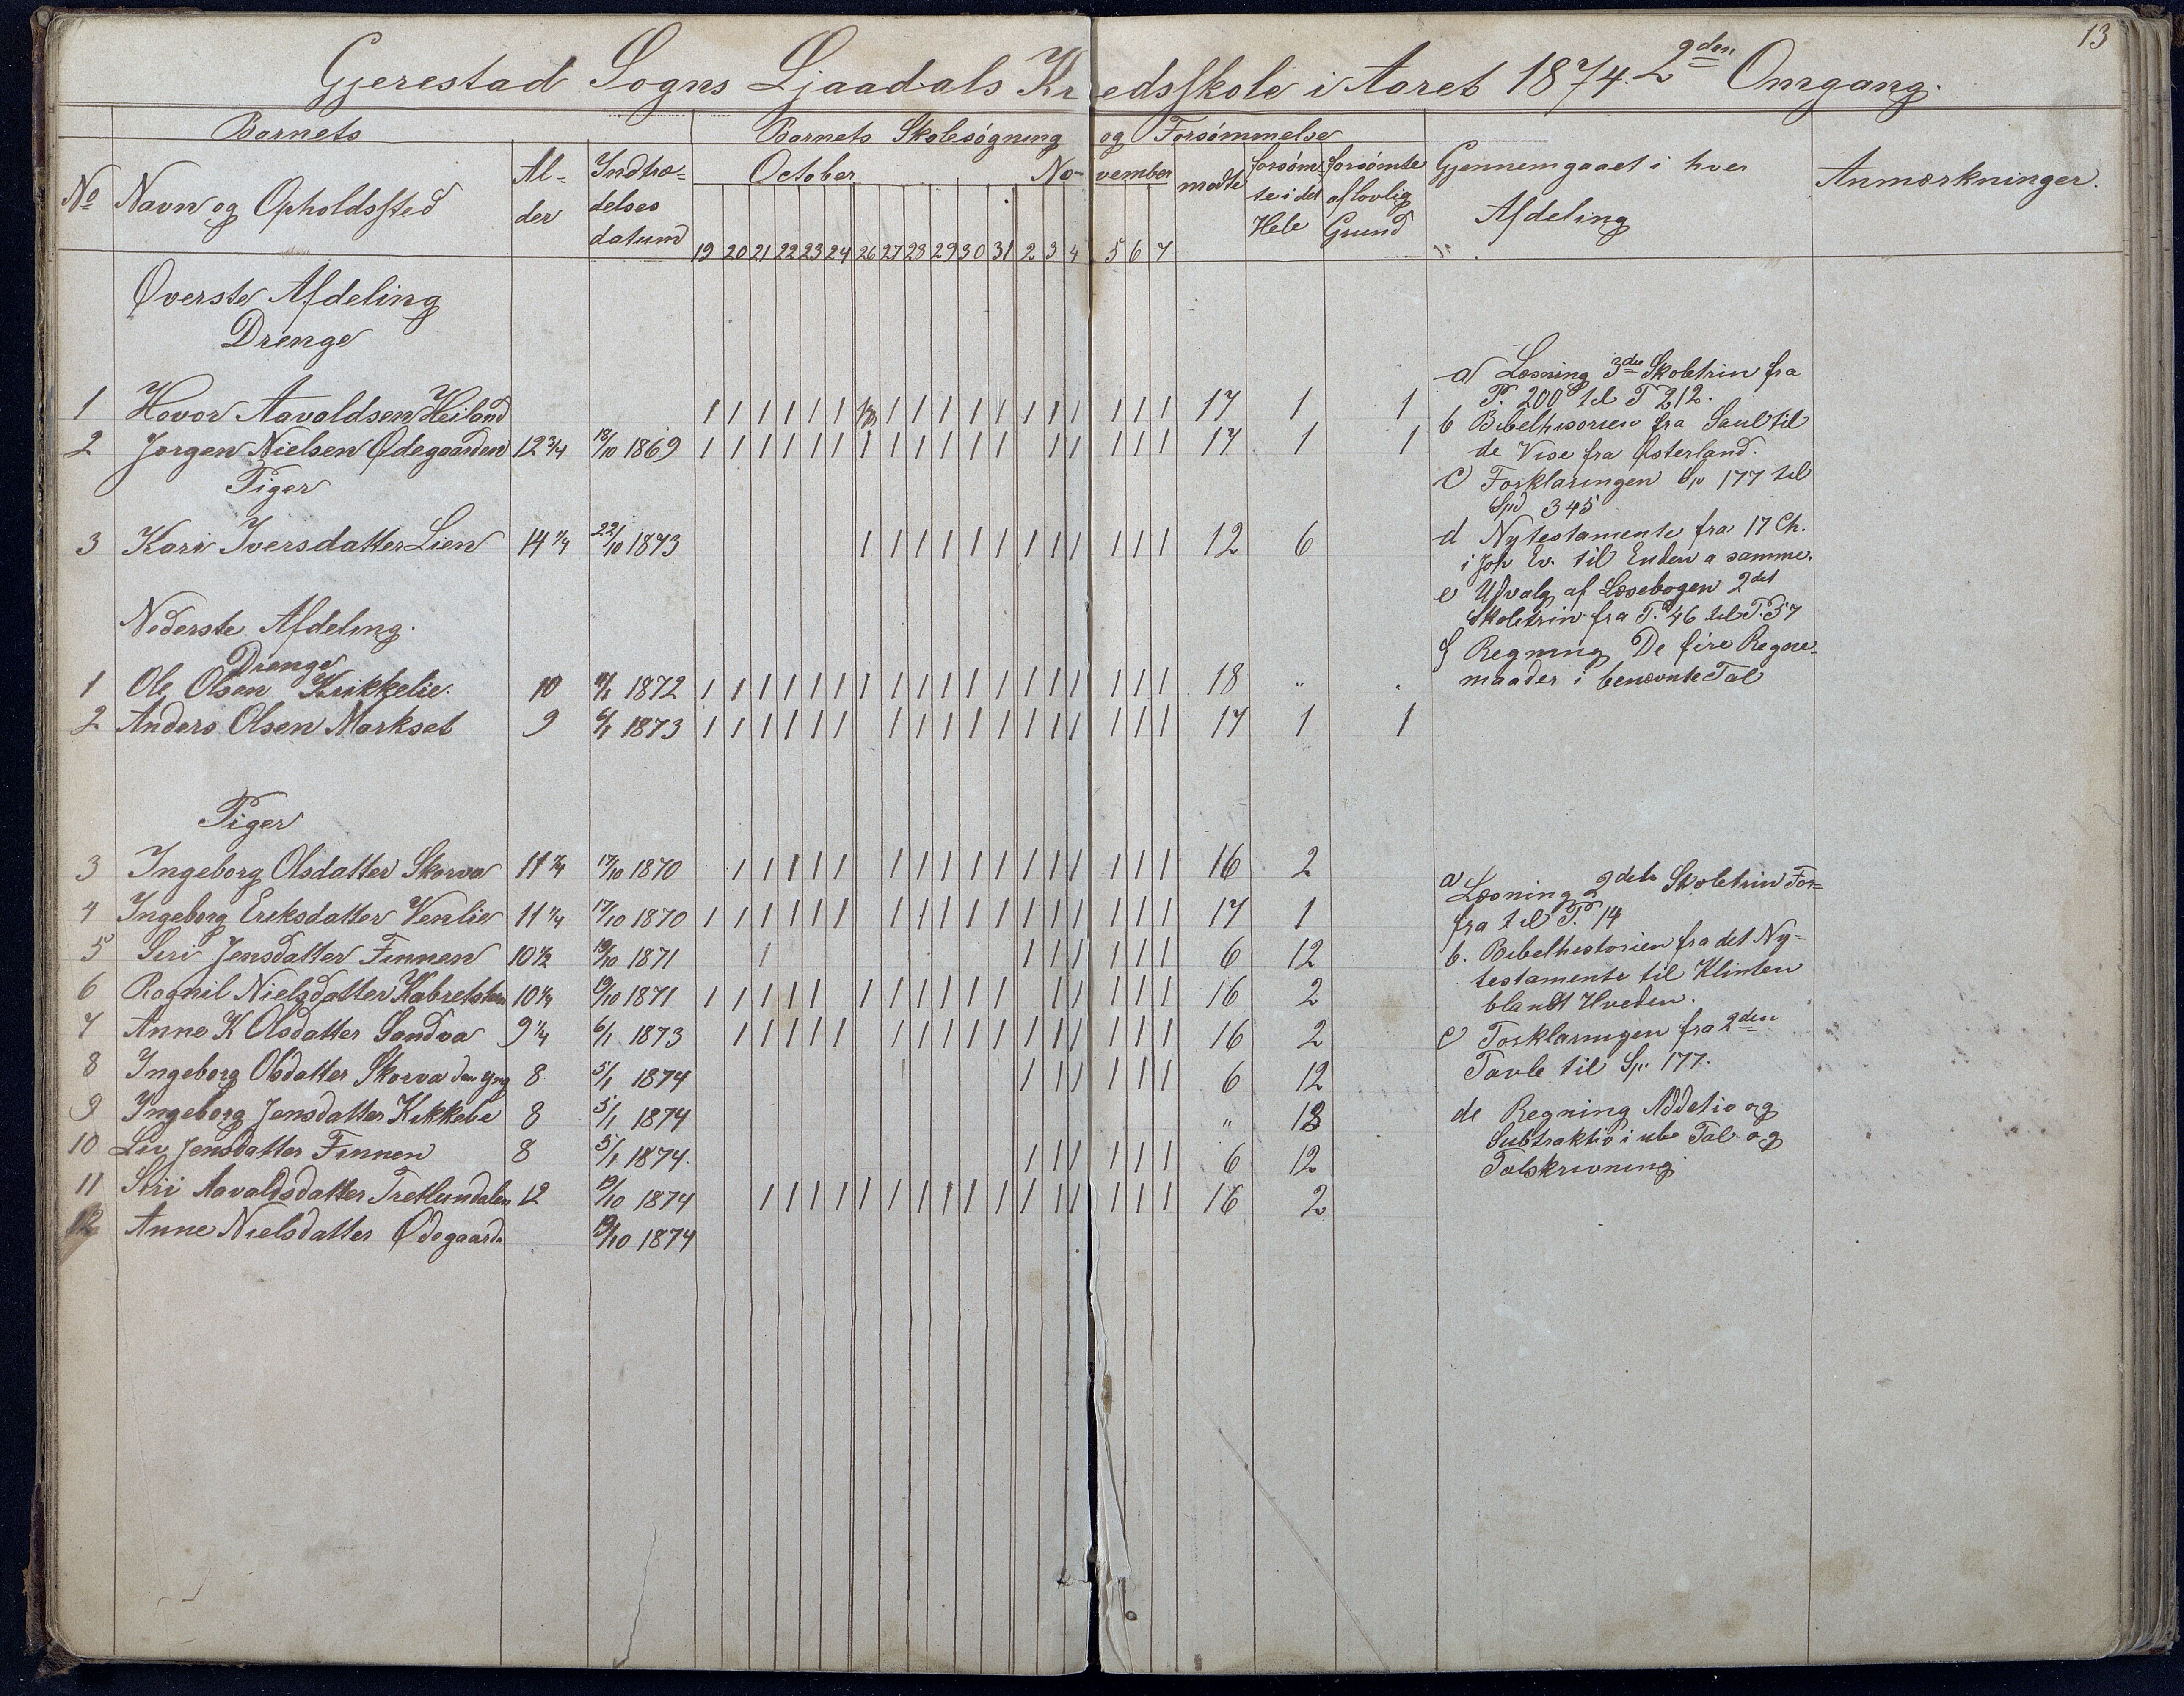 13
Gjerestad Sogns Ljaadals Kredsskole i Aaret 1874. 2den Omgang.
Barnets Barnets Skolesøgning og Forsømmelse
No Navn og Opholdssted Al-der Indtræ-delses datum October No-vember mødte forsøm-te i det Hele forsømte af lovlig Grund Gjennemgaaet i hver Afdeling Anmærkninger.
19 20 21 22 23 24 26 27 28 29 30 31 2 3 4 5 6 7
Øverste Afdeling
Drenge
1 Hovor Aavaldsen Heiland 1 1 1 1 1 1 1 1 1 1 1 1 1 1 1 1 1 17 1 1
2 Jorgen Nielsen Ødegaarden 12 3/4 18/10 1869 1 1 1 1 1 1 1 1 1 1 1 1 1 1 1 1 1 17 1 1
Piger
3 Kari Iversdatter Lien 14 1/4 22/10 1873 1 1 1 1 1 1 1 1 1 1 1 1 12 6
Nederste Afdeling.
Drenge
1 Ole Olsen Kikkelie. 10 1872 1 1 1 1 1 1 1 1 1 1 1 1 1 1 1 1 1 1 18 "
2 Anders Olsen Markset 9 6/1 1873 1 1 1 1 1 1 1 1 1 1 1 1 1 1 1 1 1 17 1 1
Piger
3 Ingeborg Olsdatter Skorva 11 1/4 17/10 1870 1 1 1 1 1 1 1 1 1 1 1 1 1 1 1 1 16 2
4 Ingeborg Eriksdatter Venlie 11 1/4 17/10 1870 1 1 1 1 1 1 1 1 1 1 1 1 1 1 1 1 1 17 1
5 Siri Jensdatter Finnen 10 1/2 19/10 1871 1 1 1 1 1 1 1 6 12
6 Ragnil Nielsdatter 10 1/4 19/10 1871 1 1 1 1 1 1 1 1 1 1 1 1 1 1 1 1 16 2
7 Anne K Olsdatter Sandva 9 1/4 6/1 1873 1 1 1 1 1 1 1 1 1 1 1 1 1 1 1 1 16 2
8 Ingeborg Olsdatter Skorva den yng 8 5/1 1874 1 1 1 1 1 1 6 12
9 Ingeborg Jensdatter Kikkelie 8 5/1 1874 " 18
10 Liv Jensdatter Finnen 8 5/1 1874. 1 1 1 1 1 1 6 12
11 Siri Aavaldsdatter Tretlundalen 12 19/10 1874 1 1 1 1 1 1 1 1 1 1 1 1 1 1 1 1 16 2
12 Anne Nielsdatter Ødegaard. 19/10 1874
a Læsning 3die Skoletrin fra
P. 200 til P 212.
b Bibelhisorien fra Saul til
de Vise fra Østerland.
c Forklaringen Sp 177 til
Sp 345
d Nytestamente fra 17 Ch.
i Joh Ev. til Enden a samme.
e Udvalg af Læsebogen 2det
Skoletrin fra P. 46 til P. 57
f Regning De fire Regne-
maader i benævnte Tal
a Læsning 2det Skoletrin For-
fra til P. 14
b. Bibelhistorien fra det Ny-
testamente til Klinten
blandt Hveden.
c Forklaringen fra 2den
Tavle til Sp. 177.
de Regning Addetio og
Subtraktio i ube Tal og
Talskrivning